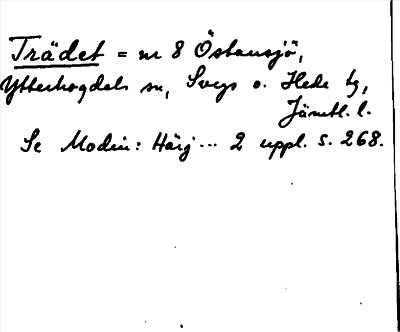 Trädet = nr 8 Östansjö,
Ytterhogdals sn, Svegs o. Hede tg,
Jämtl. l.
Se Modin: Härj... 2 uppl. s. 268.